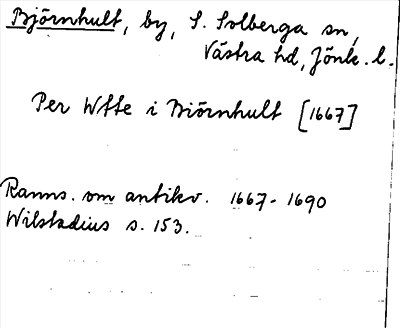 Björnhult, by, S. Solberga sn,
Västra hd, Jönk. l.
Per Wtte i Biörnhult [1667]
Ranns. om antikv. 1667-1690
Wilstadius s. 153.